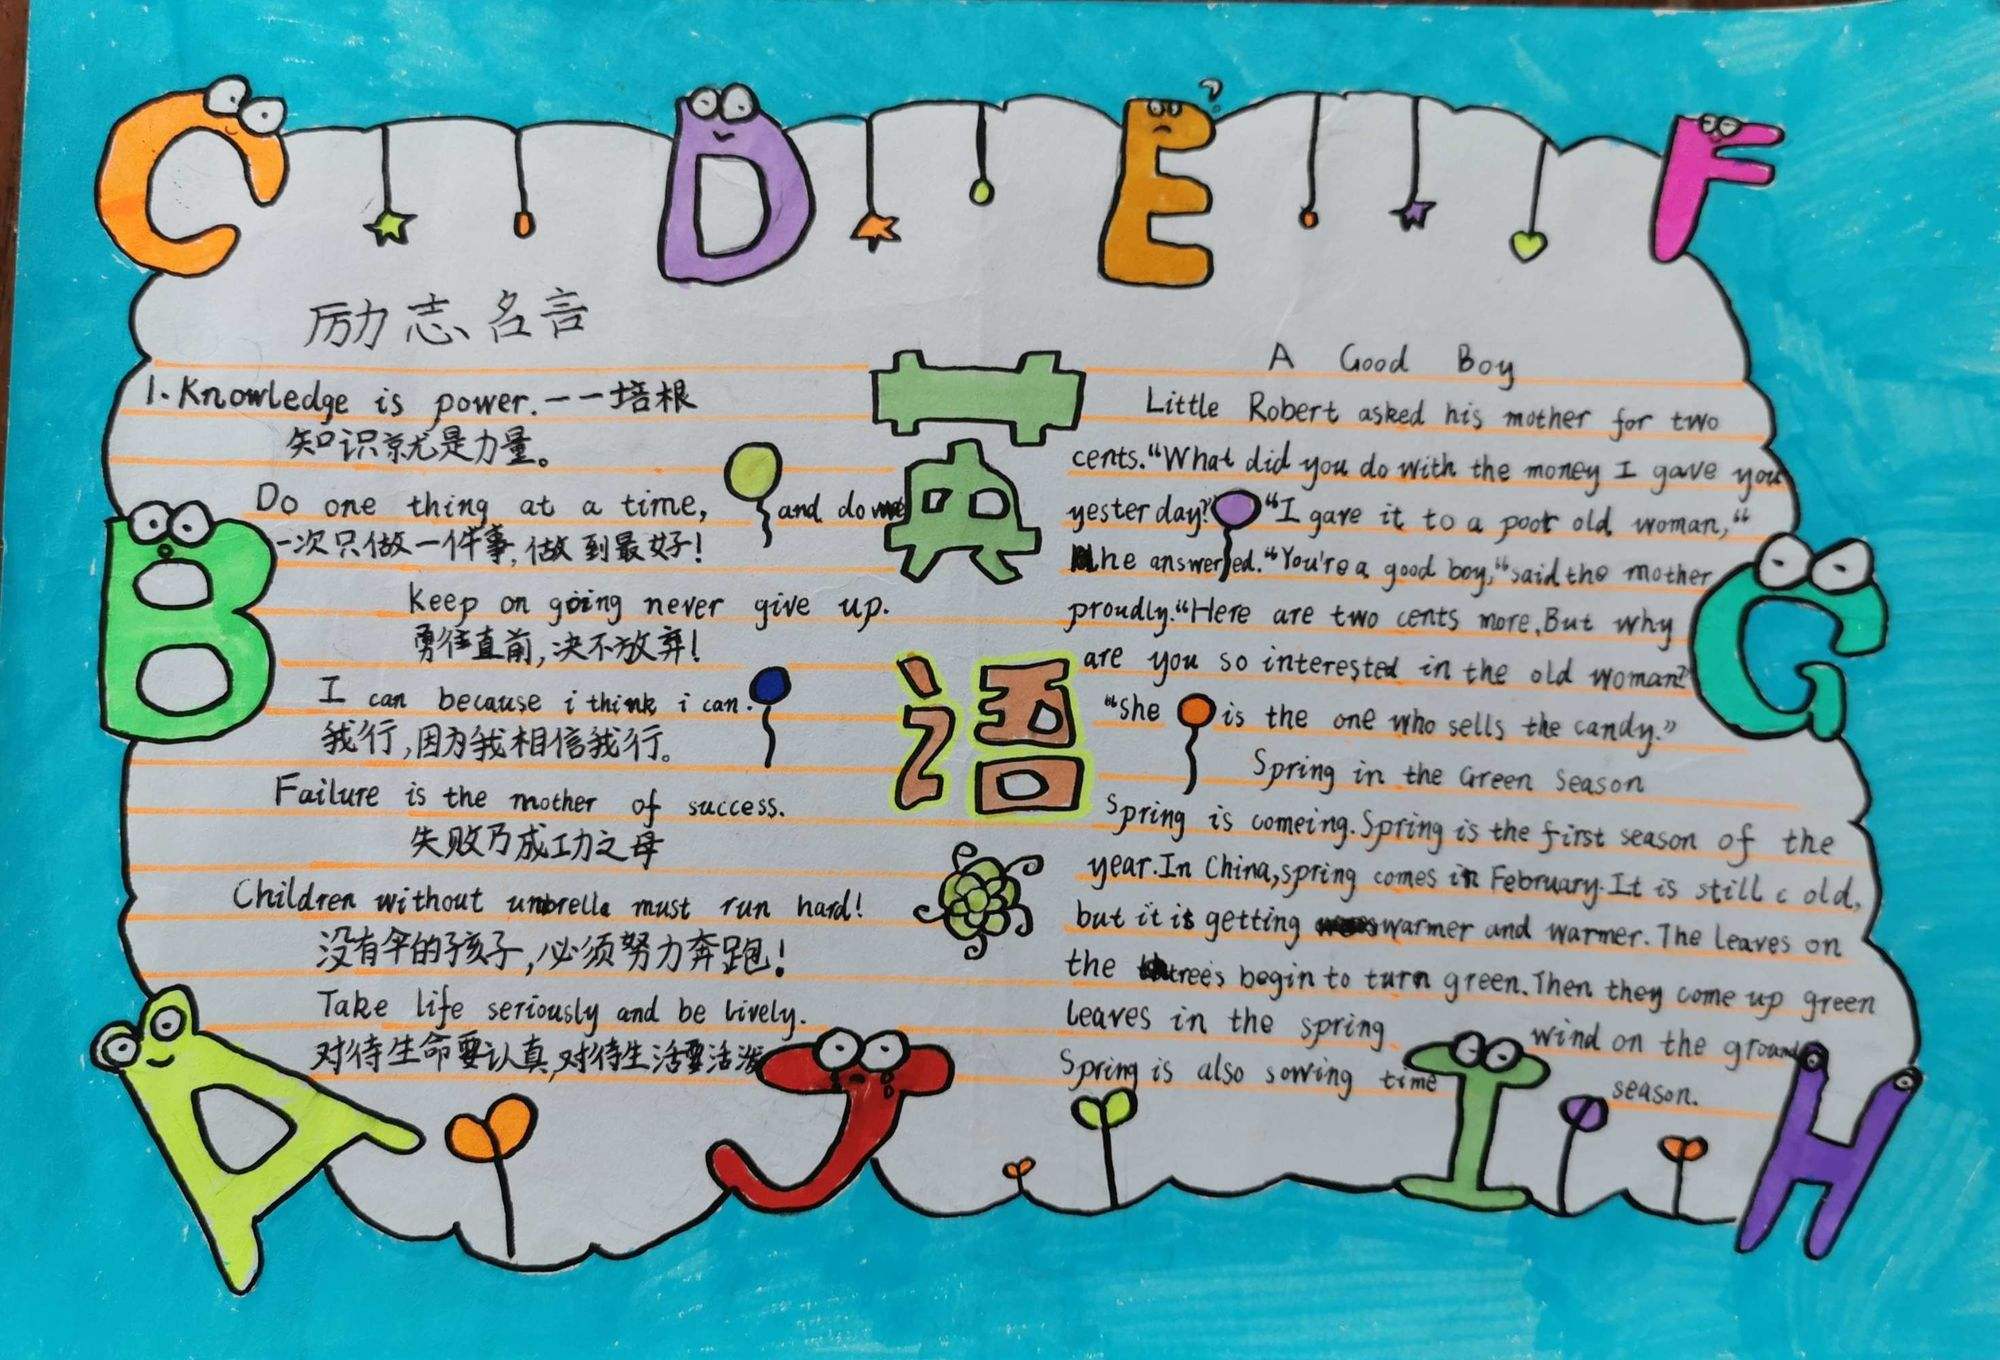 C D E F
励志名言
1. Knowledge is power. 一一培根
知识就是力量。
Do one thing at a time, and do
一次只做一件事,做到最好!
Keep on going never give up.
勇往直前,决不放弃!
I can because i think i can.
我行,因为我相信我行。
Failure is the mother of success.
失败乃成功之母
Children without umbrella must run hard!
没有伞的孩子,必须努力奔跑!
Take life seriously and be lively.
对待生命要认真,对待生活要活泼
B
A
J
英
语
A Good Boy
Little Robert asked his mother for two
cents. “What did you do with the money I gave you
yesterday?” “I gave it to a poor old woman,“
he answered. “You're a good boy,“ said the mother
proudly. “Here are two cents more. But why
are you so interested in the old woman?
“she is the one who sells the candy.”
Spring in the Green Season
Spring is comeing. Spring is the first season of the
year. In China, spring comes in February. It is still c old,
but it is getting warmer and warmer. The leaves on
the trees begin to turn green. Then they come up green
leaves in the spring wind on the ground
Spring is also sowing time season.
G
I
H